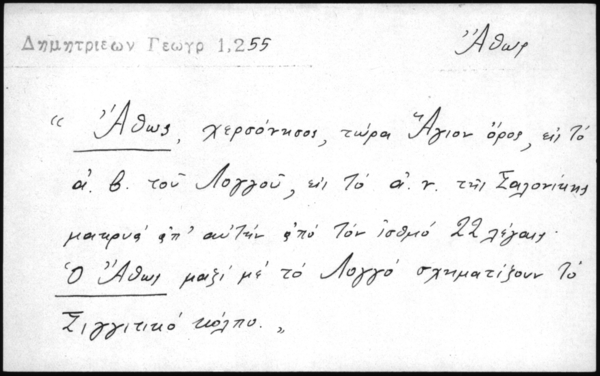 Δημητριεων Γεωγρ 1,255
Ἄθως
“ Ἄθως, χερσόνησος, τώρα Ἅγιον ὄρος, εἰς τὸ
ἀ. β. τοῦ Λογγοῦ, εἰς τὸ ἀ. ν. τῆς Σαλονίκης
μακρυά ἀπ' αὐτήν ἀπό τὸν ἰσθμό 22 λέγαις.
Ὁ Ἄθως μαζί μέ τὸ Λογγό σχηματίζουν τὸ
Σιγγιτικό κόλπο. „